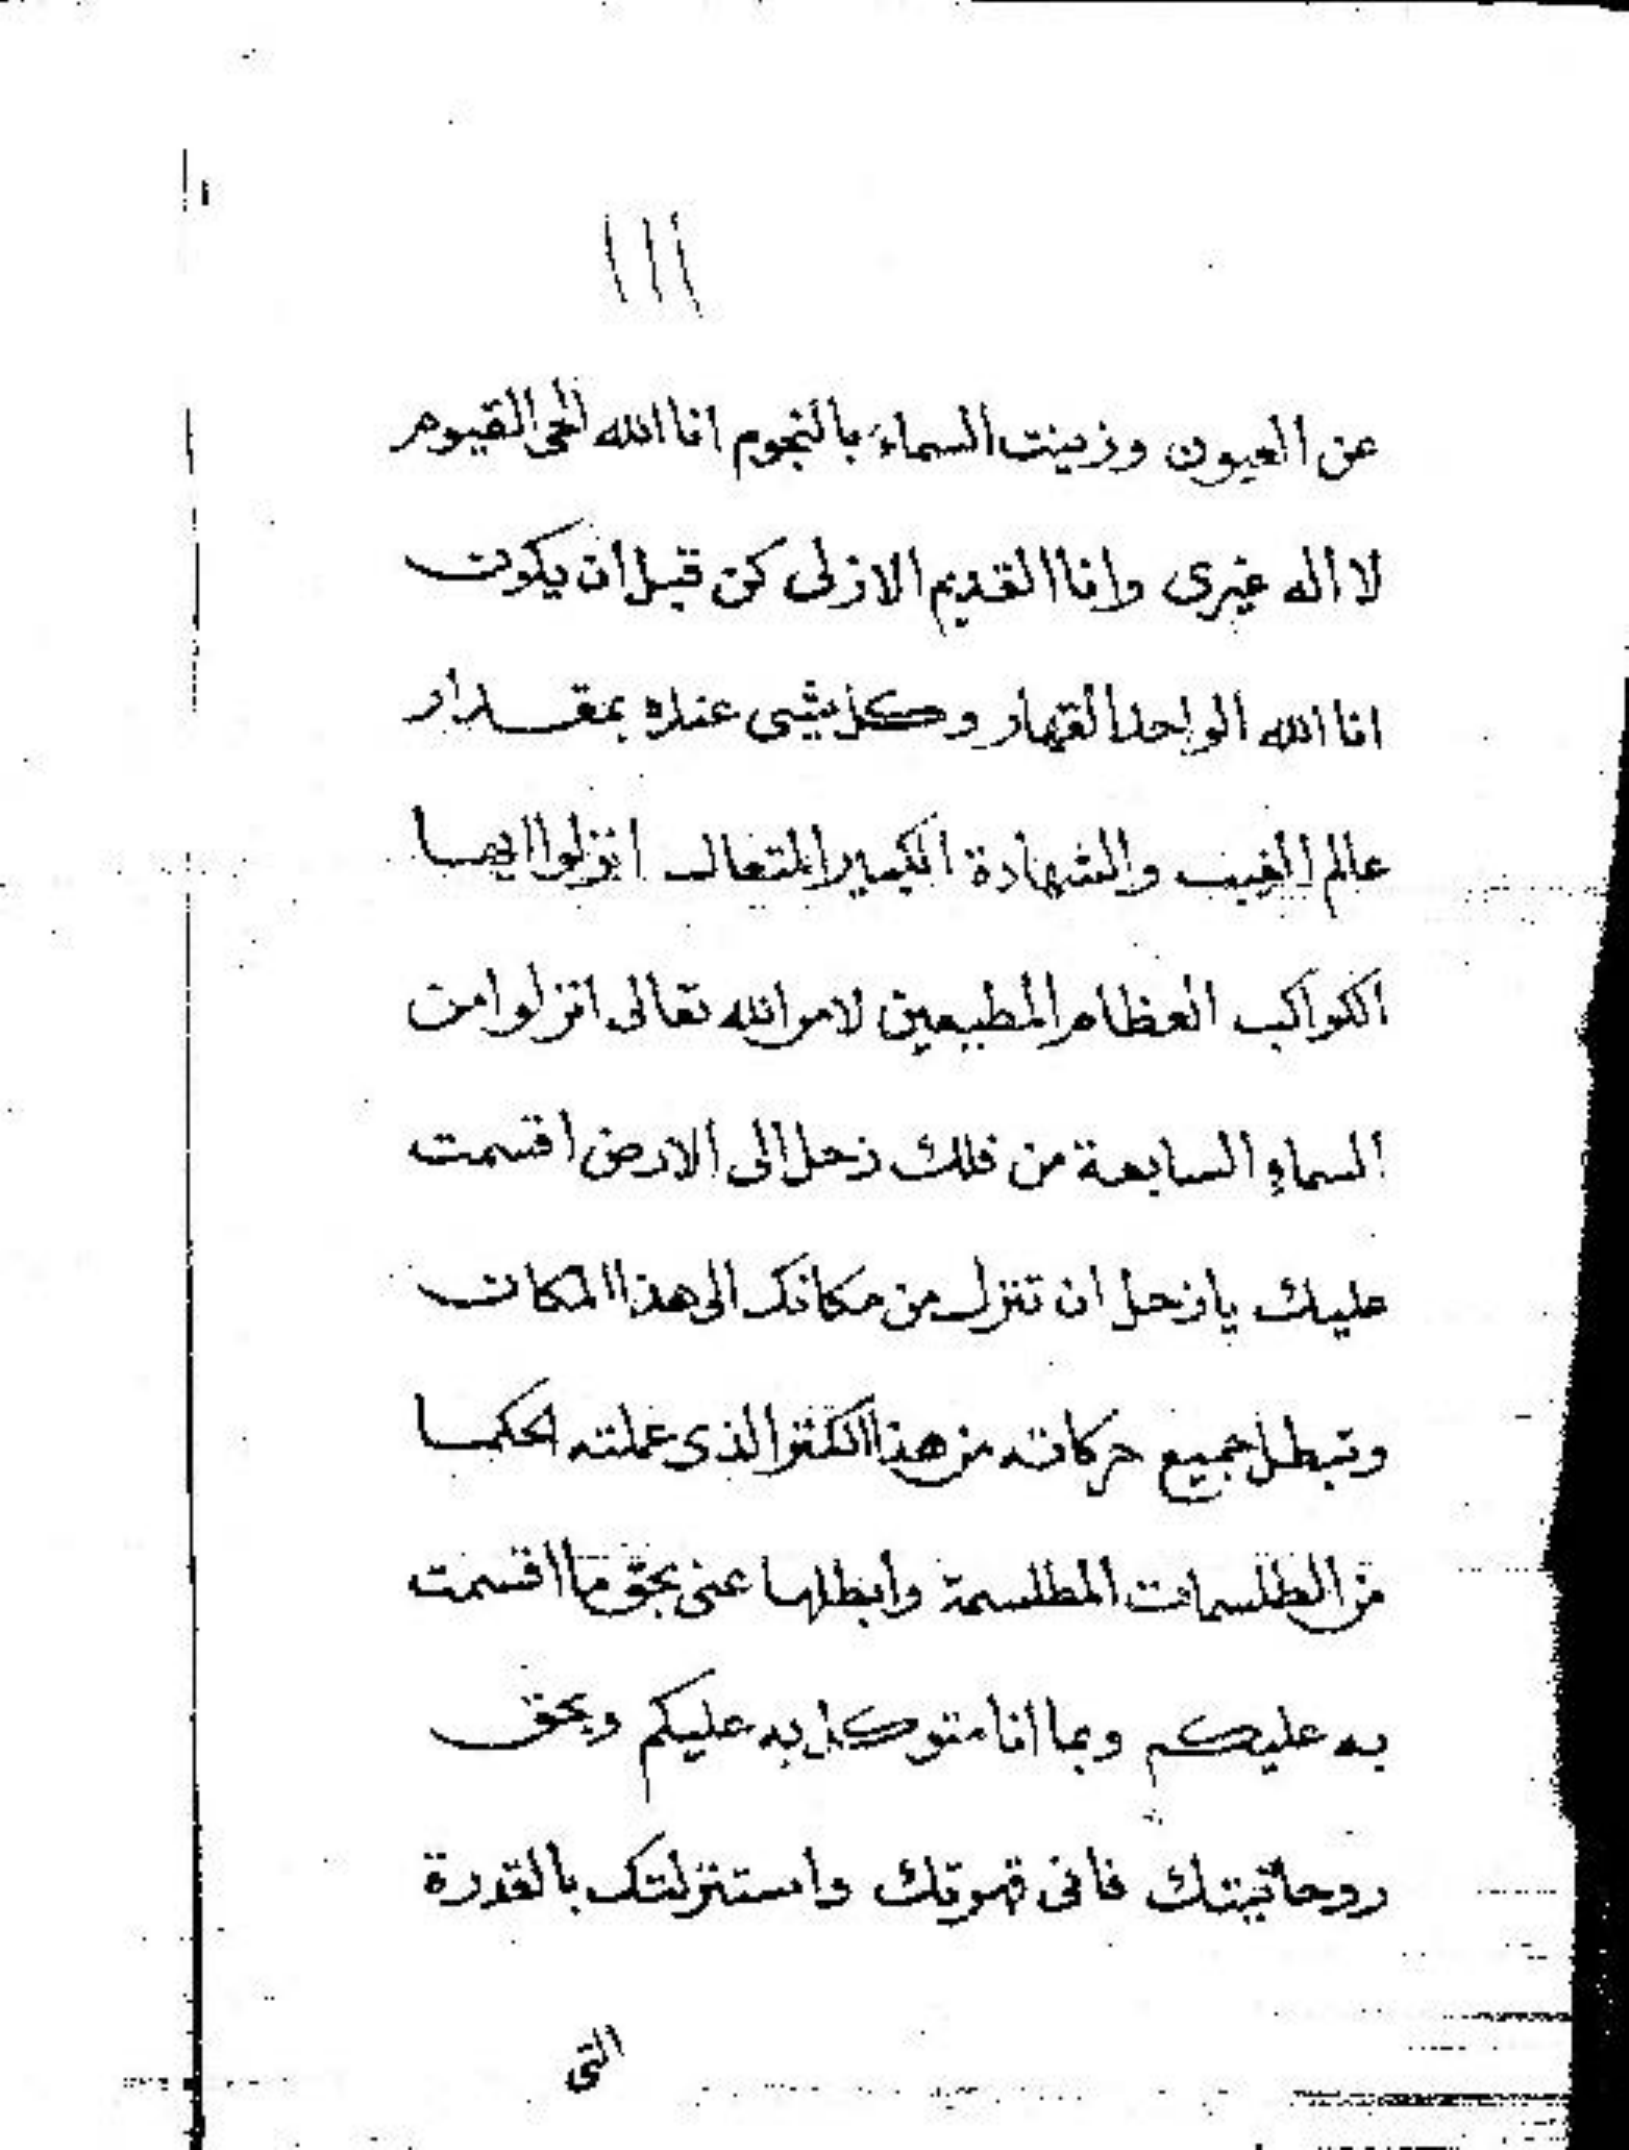 ١١١
عن العيون وزينت السماء بالنجوم انا الله الحى القيوم
لا اله غيرى وانا القديم الازلى كن قبل ان يكون
انا الله الواحد القهار وكل شيى عنده بمقدار
عالم الغيب والشهادة الكبير المتعال انزلوا ايها
الكواكب العظام المطيعين لامر الله تعالى انزلوا من
السماء السابعة من فلك زحل الى الارض اقسمت
عليك يا زحل ان تنزل من مكانك الى هذا المكان
وتبطل جميع حركاته من هذا الكنز الذى عملته الحكما
من الطلسمات المطلسمة وابطلها عنى بحق ما اقسمت
به عليكم وبما انا متوكل به عليكم وبحق
روحانيتك فانى قهرتك واستنزلتك بالقدرة
التى